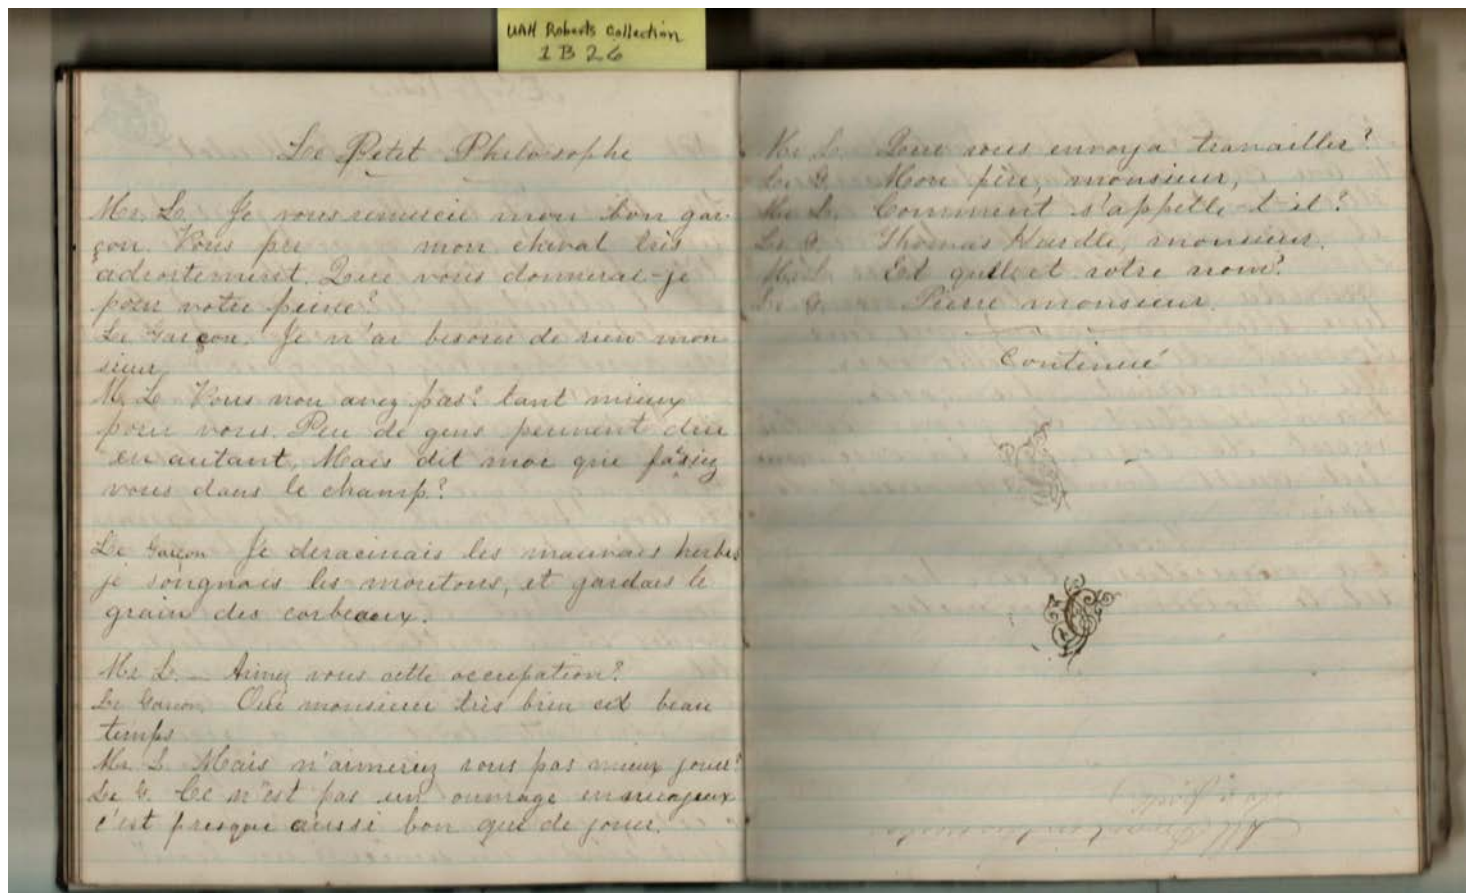 UAH Roberts Collection
1 B 26
Le Petit Philosophe
Mr. L. Je vous remercie mon bon gar-
çon. Vous mon cheval très
adroitement. Que vous donnerai-je
pour votre peine?
Le Garçon. Je n'ai besoin de rien mon
sieur
M. L. Vous non avez pas? tant mieux
pour vous. Peu de gens peuvent dire
en autant. Mais dit moi que
vous dans le champ?
Le Garçon Je deracinais les mauvais herbes
je soignais les moutons, et gardais le
grain des corbeaux.
Mr L. — Aimez vous cette occupation?
Le Garcon. Oui monsieur très bien cet beau
temps
Mr. L. Mais n'aimeriez vous pas mieux jouer?
Le G. Ce n'est pas un ouvrage
c'est presque aussi bon que de jouer.
Mr L. Que vous envoya travailler?
Le G. Mon père, monsieur,
Mr L. Comment s'appelle-t-il?
Le G. Thomas Hurdle, monsieur.
Mr L. Et quel est votre nom?
Le G. Pierre monsieur.
Continué